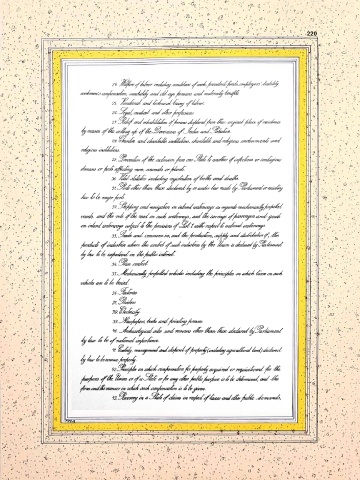 220
24. Welfare of labour including conditions of work, provident funds, employers' liability
workmen's compensation, invalidity and old age pensions and maternity benefits.
25. Vocational and technical training of labour.
26. Legal, medical and other professions.
27. Relief and rehabilitation of persons displaced from their original place of residence
by reason of the setting up of the Dominions of India and Pakistan.
28. Charities and charitable institutions, charitable and religious endowments and
religious institutions.
29. Prevention of the extension from one State to another of infectious or contagious
diseases or pests affecting men, animals or plants.
30. Vital statistics including registration of births and deaths.
31. Ports other than those declared by or under law made by Parliament or existing
law to be major ports.
32. Shipping and navigation on inland waterways as regards mechanically propelled
vessels, and the rule of the road on such waterways, and the carriage of passengers and goods
on inland waterways subject to the provisions of List I with respect to national waterways.
33. Trade and commerce in, and the production, supply and distribution of, the
products of industries where the control of such industries by the Union is declared by Parliament
by law to be expedient in the public interest.
34. Price control.
35. Mechanically propelled vehicles including the principles on which taxes on such
vehicles are to be levied.
36. Factories.
37. Boilers.
38. Electricity.
39. Newspapers, books and printing presses.
40. Archaeological sites and remains other than those declared by Parliament
by law to be of national importance.
41. Custody, management and disposal of property (including agricultural land) declared
by law to be evacuee property.
42. Principles on which compensation for property acquired or requisitioned for the
purposes of the Union or of a State or for any other public purpose is to be determined, and the
form and the manner in which such compensation is to be given.
43. Recovery in a State of claims in respect of taxes and other public demands,